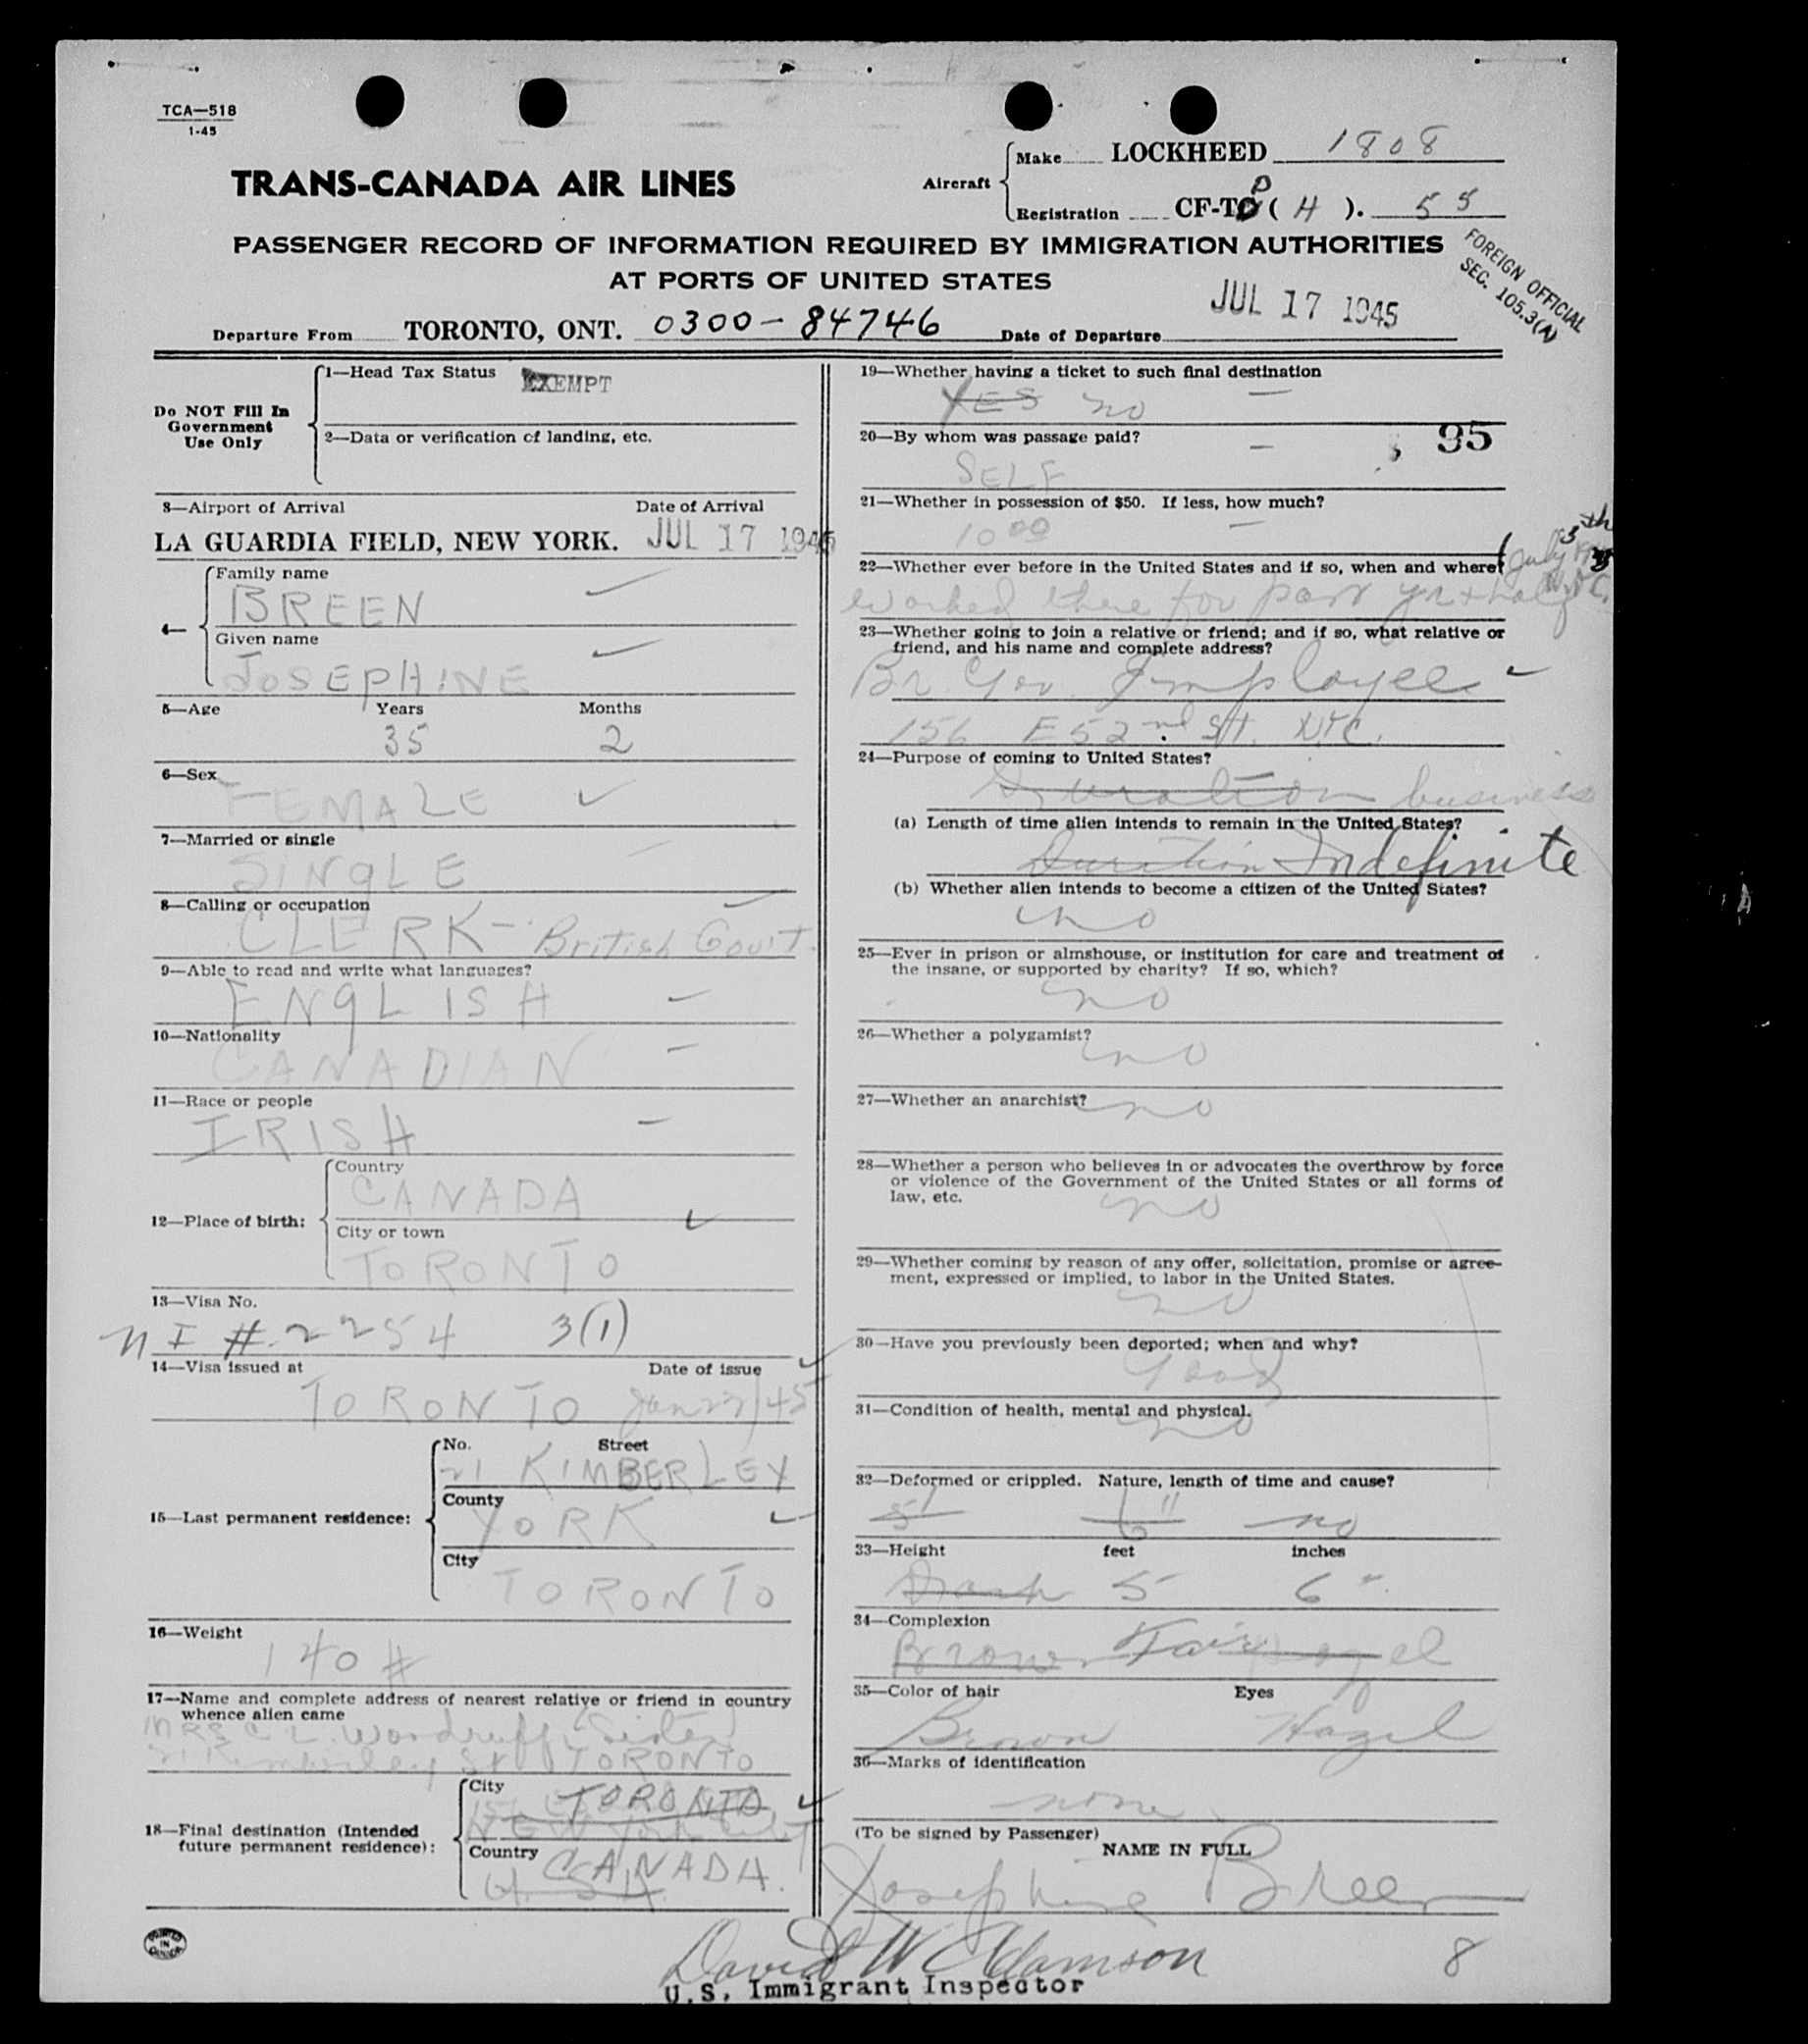 TCA—518
1-45
TRANS-CANADA AIR LINES
Aircraft
Make LOCKHEED 1808
Registration CF-T ( H ). 55
PASSENGER RECORD OF INFORMATION REQUIRED BY IMMIGRATION AUTHORITIES
AT PORTS OF UNITED STATES
FOREIGN OFFICIAL
SEC. 105.3(A)
Departure From TORONTO, ONT. 0300-84746 Date of Departure JUL 17 1945
Do NOT Fill In
Government
Use Only
1—Head Tax Status EXEMPT
2—Data or verification of landing, etc.
3—Airport of Arrival Date of Arrival
LA GUARDIA FIELD, NEW YORK. JUL 17 1945
4—
Family name
BREEN
Given name
JOSEPHINE
5—Age Years Months
35 2
6—Sex
FEMALE
7—Married or single
SINGLE
8—Calling or occupation
CLERK - British Gov't.
9—Able to read and write what languages?
ENGLISH
10—Nationality
CANADIAN
11—Race or people
IRISH
12—Place of birth:
Country
CANADA
City or town
TORONTO
13—Visa No.
NI # 2254 3(1)
14—Visa issued at Date of issue
TORONTO Jan 22/45
15—Last permanent residence:
No. Street
21 KIMBERLEY
County
YORK
City
TORONTO
16—Weight
140 #
17—Name and complete address of nearest relative or friend in country
whence alien came
MRS C. L. Woodruff (Sister)
21 Kimberley St TORONTO
18—Final destination (Intended
future permanent residence):
City
TORONTO
NEW York City
Country
CANADA.
U.S.A.
PRINTED
IN
CANADA
19—Whether having a ticket to such final destination
YES no
20—By whom was passage paid?
95
SELF
21—Whether in possession of $50. If less, how much?
10 00
22—Whether ever before in the United States and if so, when and where?
worked there for past yr & half
23—Whether going to join a relative or friend; and if so, what relative or
friend, and his name and complete address?
Br. Gov. Employee
156 E 52nd St. NYC.
24—Purpose of coming to United States?
Duration business
(a) Length of time alien intends to remain in the United States?
Duration Indefinite
(b) Whether alien intends to become a citizen of the United States?
no
25—Ever in prison or almshouse, or institution for care and treatment of
the insane, or supported by charity? If so, which?
no
26—Whether a polygamist?
no
27—Whether an anarchist?
no
28—Whether a person who believes in or advocates the overthrow by force
or violence of the Government of the United States or all forms of
law, etc.
no
29—Whether coming by reason of any offer, solicitation, promise or agree-
ment, expressed or implied, to labor in the United States.
no
30—Have you previously been deported; when and why?
Good
31—Condition of health, mental and physical.
no
32—Deformed or crippled. Nature, length of time and cause?
5' 6" no
33—Height feet inches
Dark 5 6"
34—Complexion
Brown Fair Hazel
35—Color of hair Eyes
Brown Hazel
36—Marks of identification
none
(To be signed by Passenger)
NAME IN FULL
Josephine Breen
David W Adamson
U.S. Immigrant Inspector
8